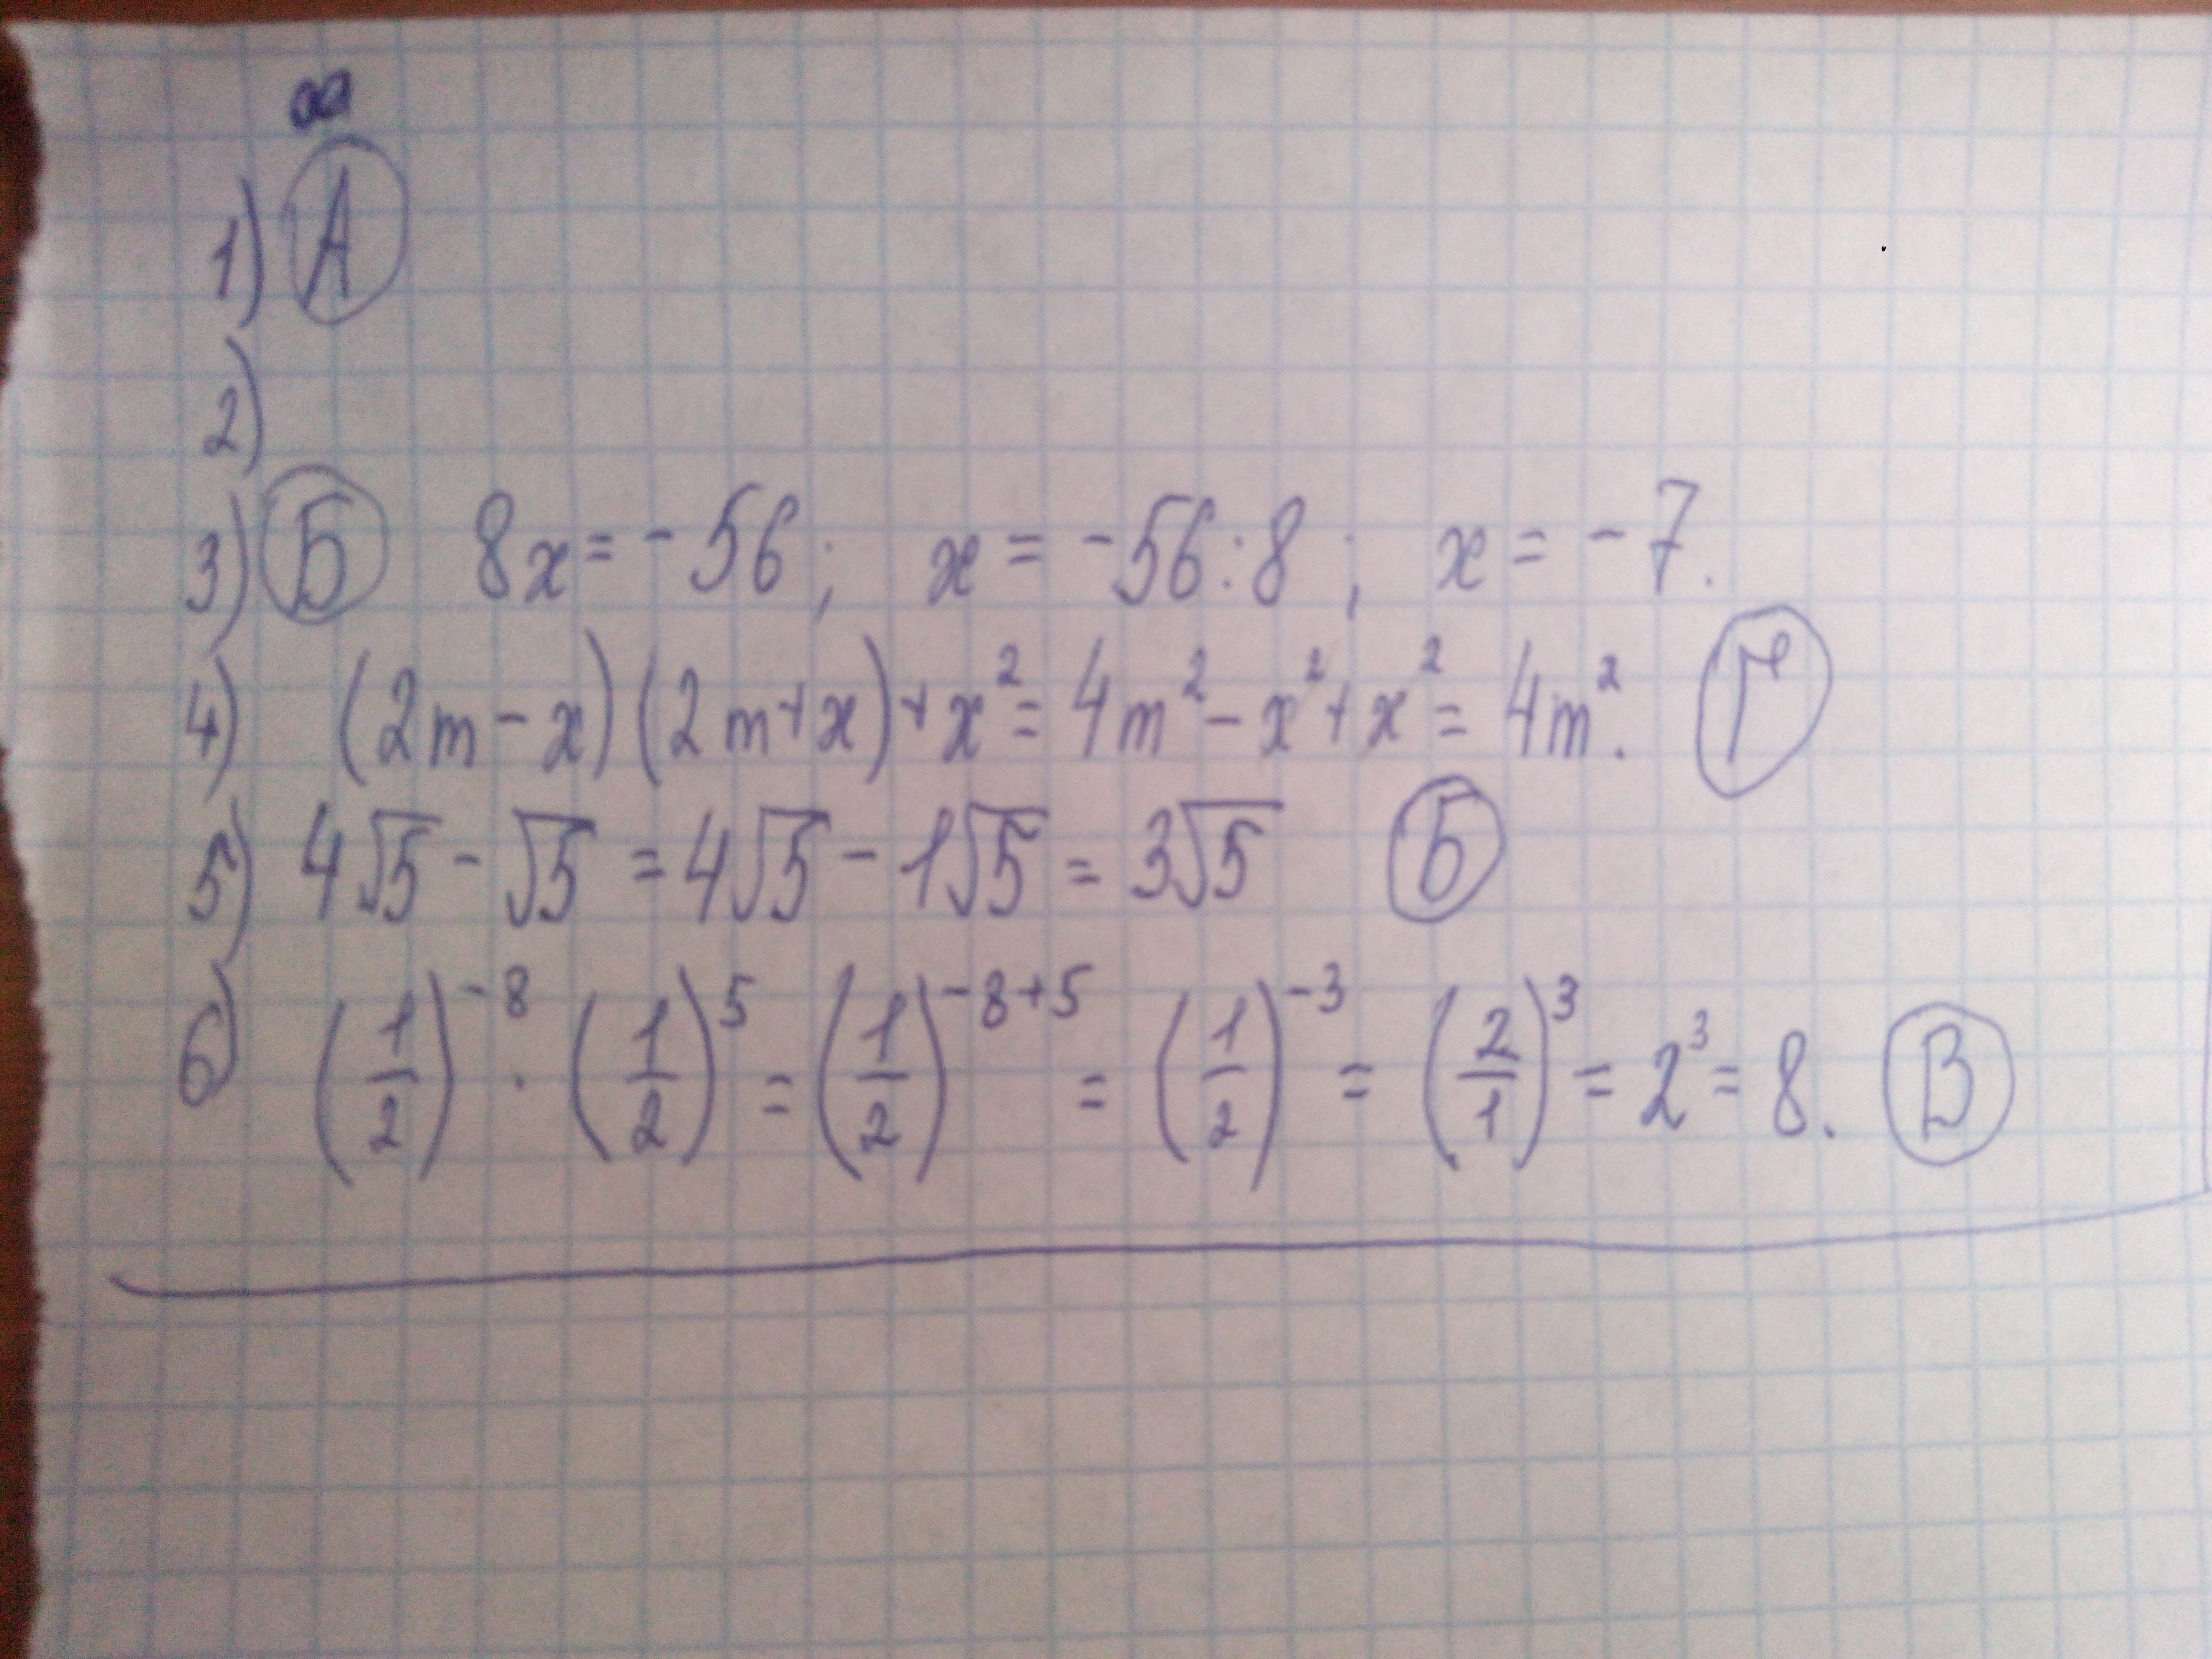 1) А
2)
3) Б 8x = -56; x = -56:8; x = -7.
4) (2m - x)(2m+x)+x² = 4m² - x² + x² = 4m². Г
5) 4√5 - √5 = 4√5 - 1√5 = 3√5 Б
6) (1/2)⁻⁸ · (1/2)⁵ = (1/2)⁻⁸⁺⁵ = (1/2)⁻³ = (2/1)³ = 2³ = 8. В